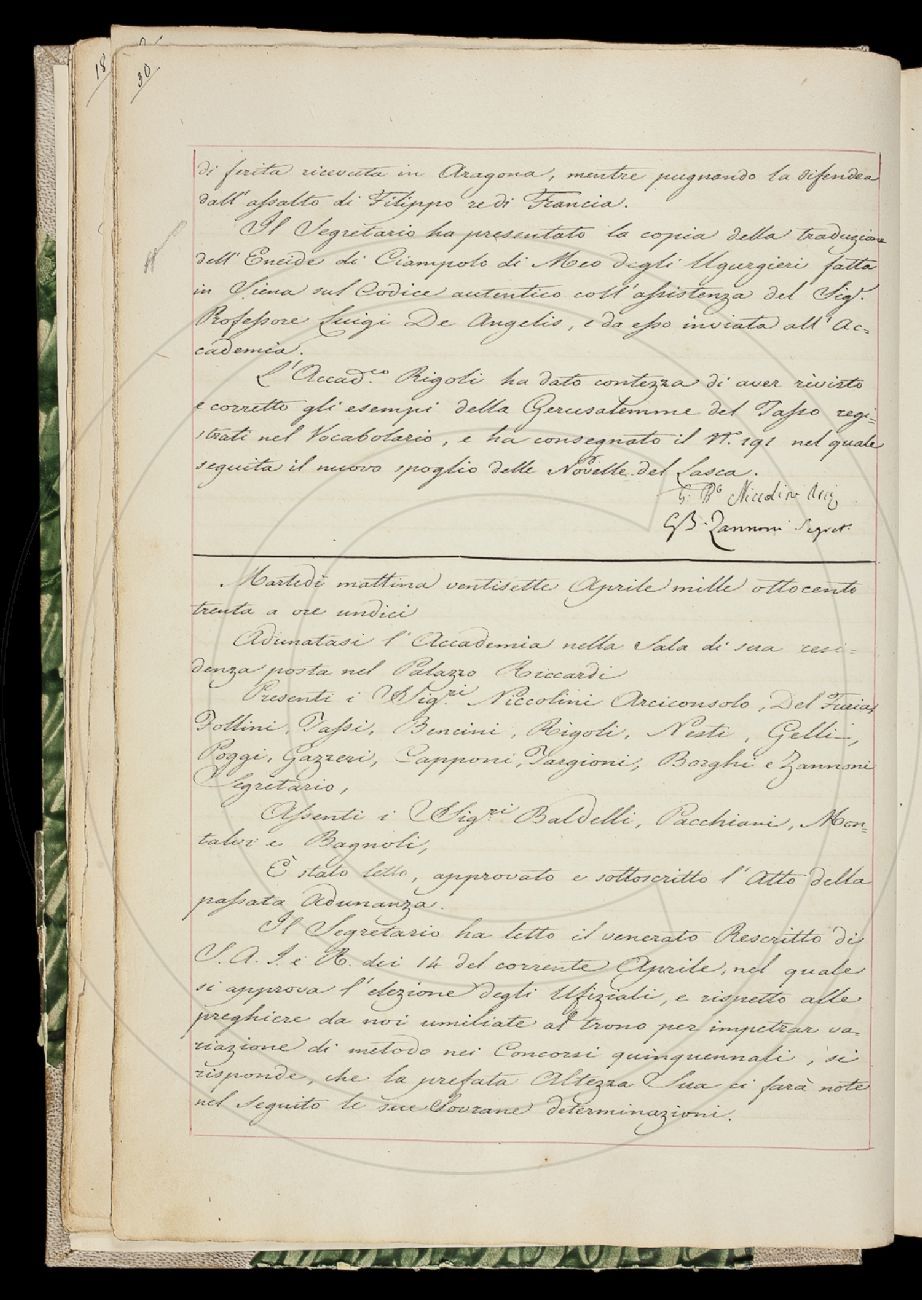 18
30
di ferita ricevuta in Aragona, mentre pugnando la difendea
dall'assalto di Filippo re di Francia.
Il Segretario ha presentato la copia della traduzione
dell'Eneide di Ciampolo di Meo degli Ugurgieri fatta
in Siena sul Codice autentico coll'assistenza del Sig.r
Professore Luigi De Angelis, e da esso inviata all'Ac=
cademia.
L'Accad.co Rigoli ha dato contezza di aver rivisto
e corretto gli esempi della Gerusalemme del Tasso regi=
strati nel Vocabolario, e ha consegnato il N.° 191 nel quale
seguita il nuovo spoglio delle Novelle del Lasca.
G. Bª Niccolini Arci
GB. Zannoni Segret.
Martedì mattina ventisette Aprile mille ottocento
trenta a ore undici
Adunatasi l'Accademia nella Sala di sua resi=
denza posta nel Palazzo Riccardi
Presenti i SSig.ri Niccolini Arciconsolo, Del Furia,
Follini, Tassi, Bencini, Rigoli, Nesti, Gelli,
Poggi, Gazzeri, Capponi, Targioni, Borghi e Zannoni
Segretario,
Assenti i SSig.ri Baldelli, Pacchiani, Mon=
talvi e Bagnoli,
È stato letto, approvato e sottoscritto l'Atto della
passata Adunanza.
Il Segretario ha letto il venerato Rescritto di
S. A. I. e R. dei 14 del corrente Aprile, nel quale
si approva l'elezione degli Ufiziali, e rispetto alle
preghiere da noi umiliate al trono per impetrar va=
riazione di metodo nei Concorsi quinquennali, si
risponde, che la prefata Altezza Sua ci farà note
nel seguito le sue Sovrane determinazioni.